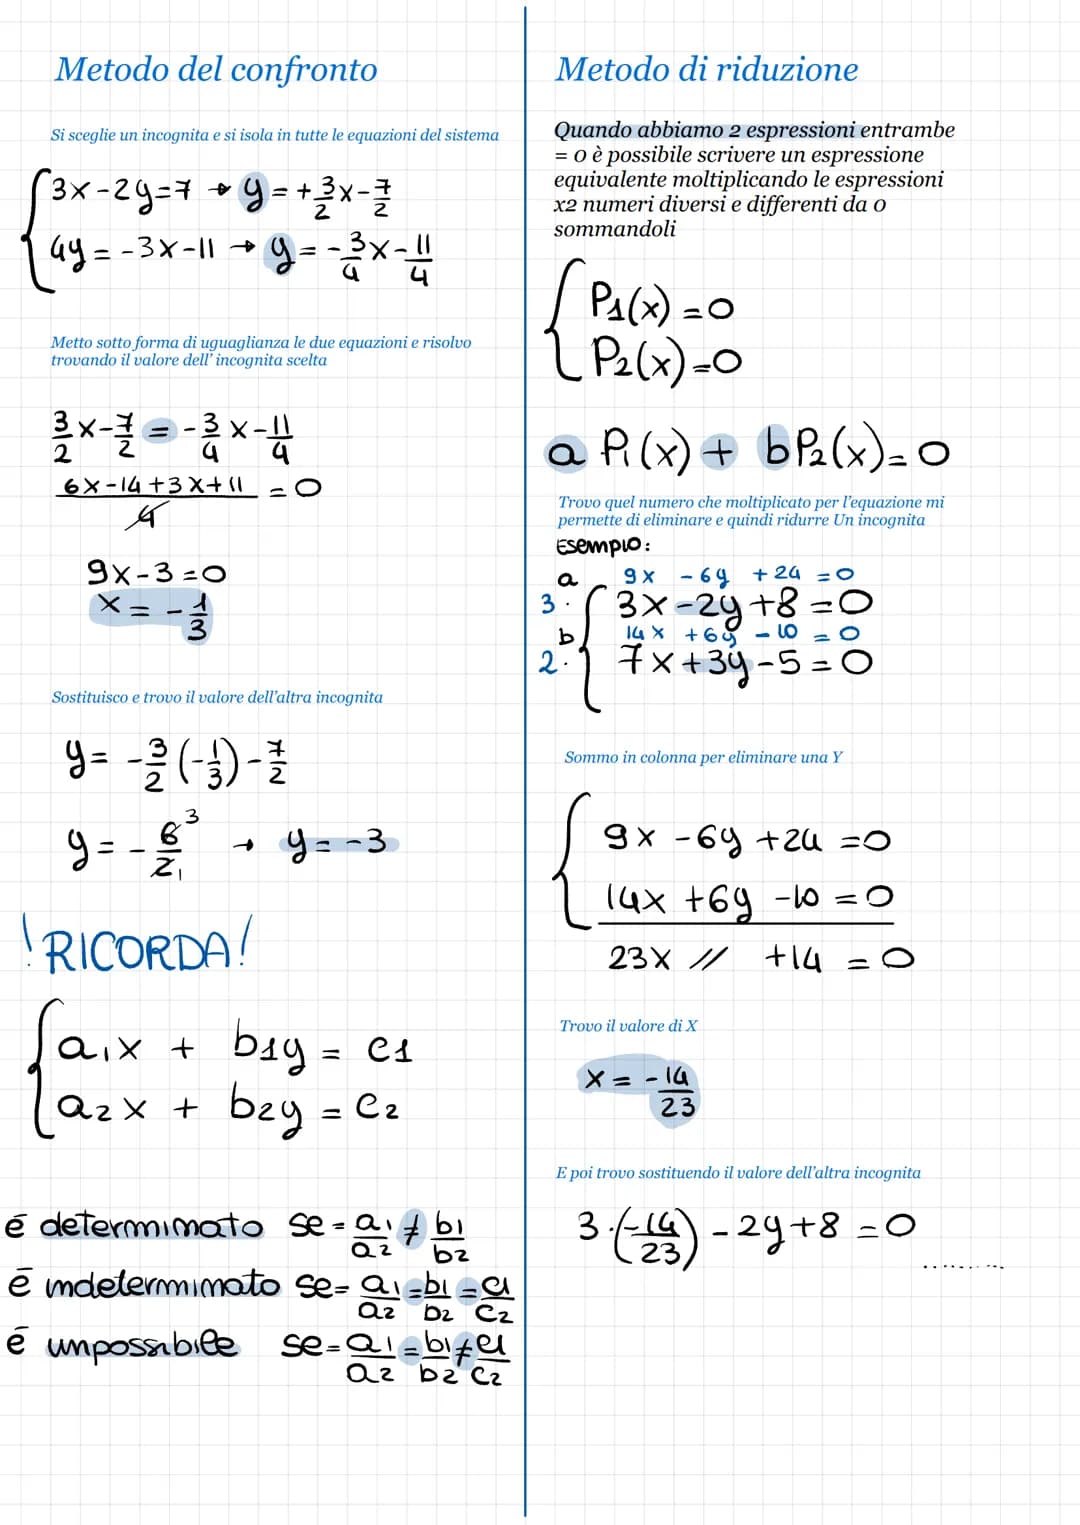 Metodo del confronto
Si sceglie un incognita e si isola in tutte le equazioni del sistema
3x-2y=7 → y=+3/2x-7/2
4y=-3x-11 → y=-3/4x-11/4
Metto sotto forma di uguaglianza le due equazioni e risolvo
trovando il valore dell' incognita scelta
3/2x-7/2=-3/4x-11/4
6x-14+3x+11/4=0
9x-3=0
x=-1/3
Sostituisco e trovo il valore dell'altra incognita
y=-3/2(-1/3)-7/2
y=-6³/2₁ → y=-3
!RICORDA!
a₁x + b₁y = c₁
a₂x + b₂y = c₂
é determinato se=a₁/a₂≠b₁/b₂
é indeterminato se=a₁/a₂=b₁/b₂=c₁/c₂
é impossibile se=a₁/a₂=b₁/b₂≠c₁/c₂
Metodo di riduzione
Quando abbiamo 2 espressioni entrambe
= 0 è possibile scrivere un espressione
equivalente moltiplicando le espressioni
x2 numeri diversi e differenti da 0
sommandoli
P₁(x)=0
P₂(x)=0
a P₁(x)+ bP₂(x)=0
Trovo quel numero che moltiplicato per l'equazione mi
permette di eliminare e quindi ridurre Un incognita
Esempio:
a 9x -6y +24 =0
3· 3x-2y+8=0
b 14x +6y -10 =0
2· 7x+3y-5=0
Sommo in colonna per eliminare una Y
9x -6y +24 =0
14x +6y -10 =0
23x // +14 =0
Trovo il valore di X
x=-14/23
E poi trovo sostituendo il valore dell'altra incognita
3·(-14/23)-2y+8=0 ..........